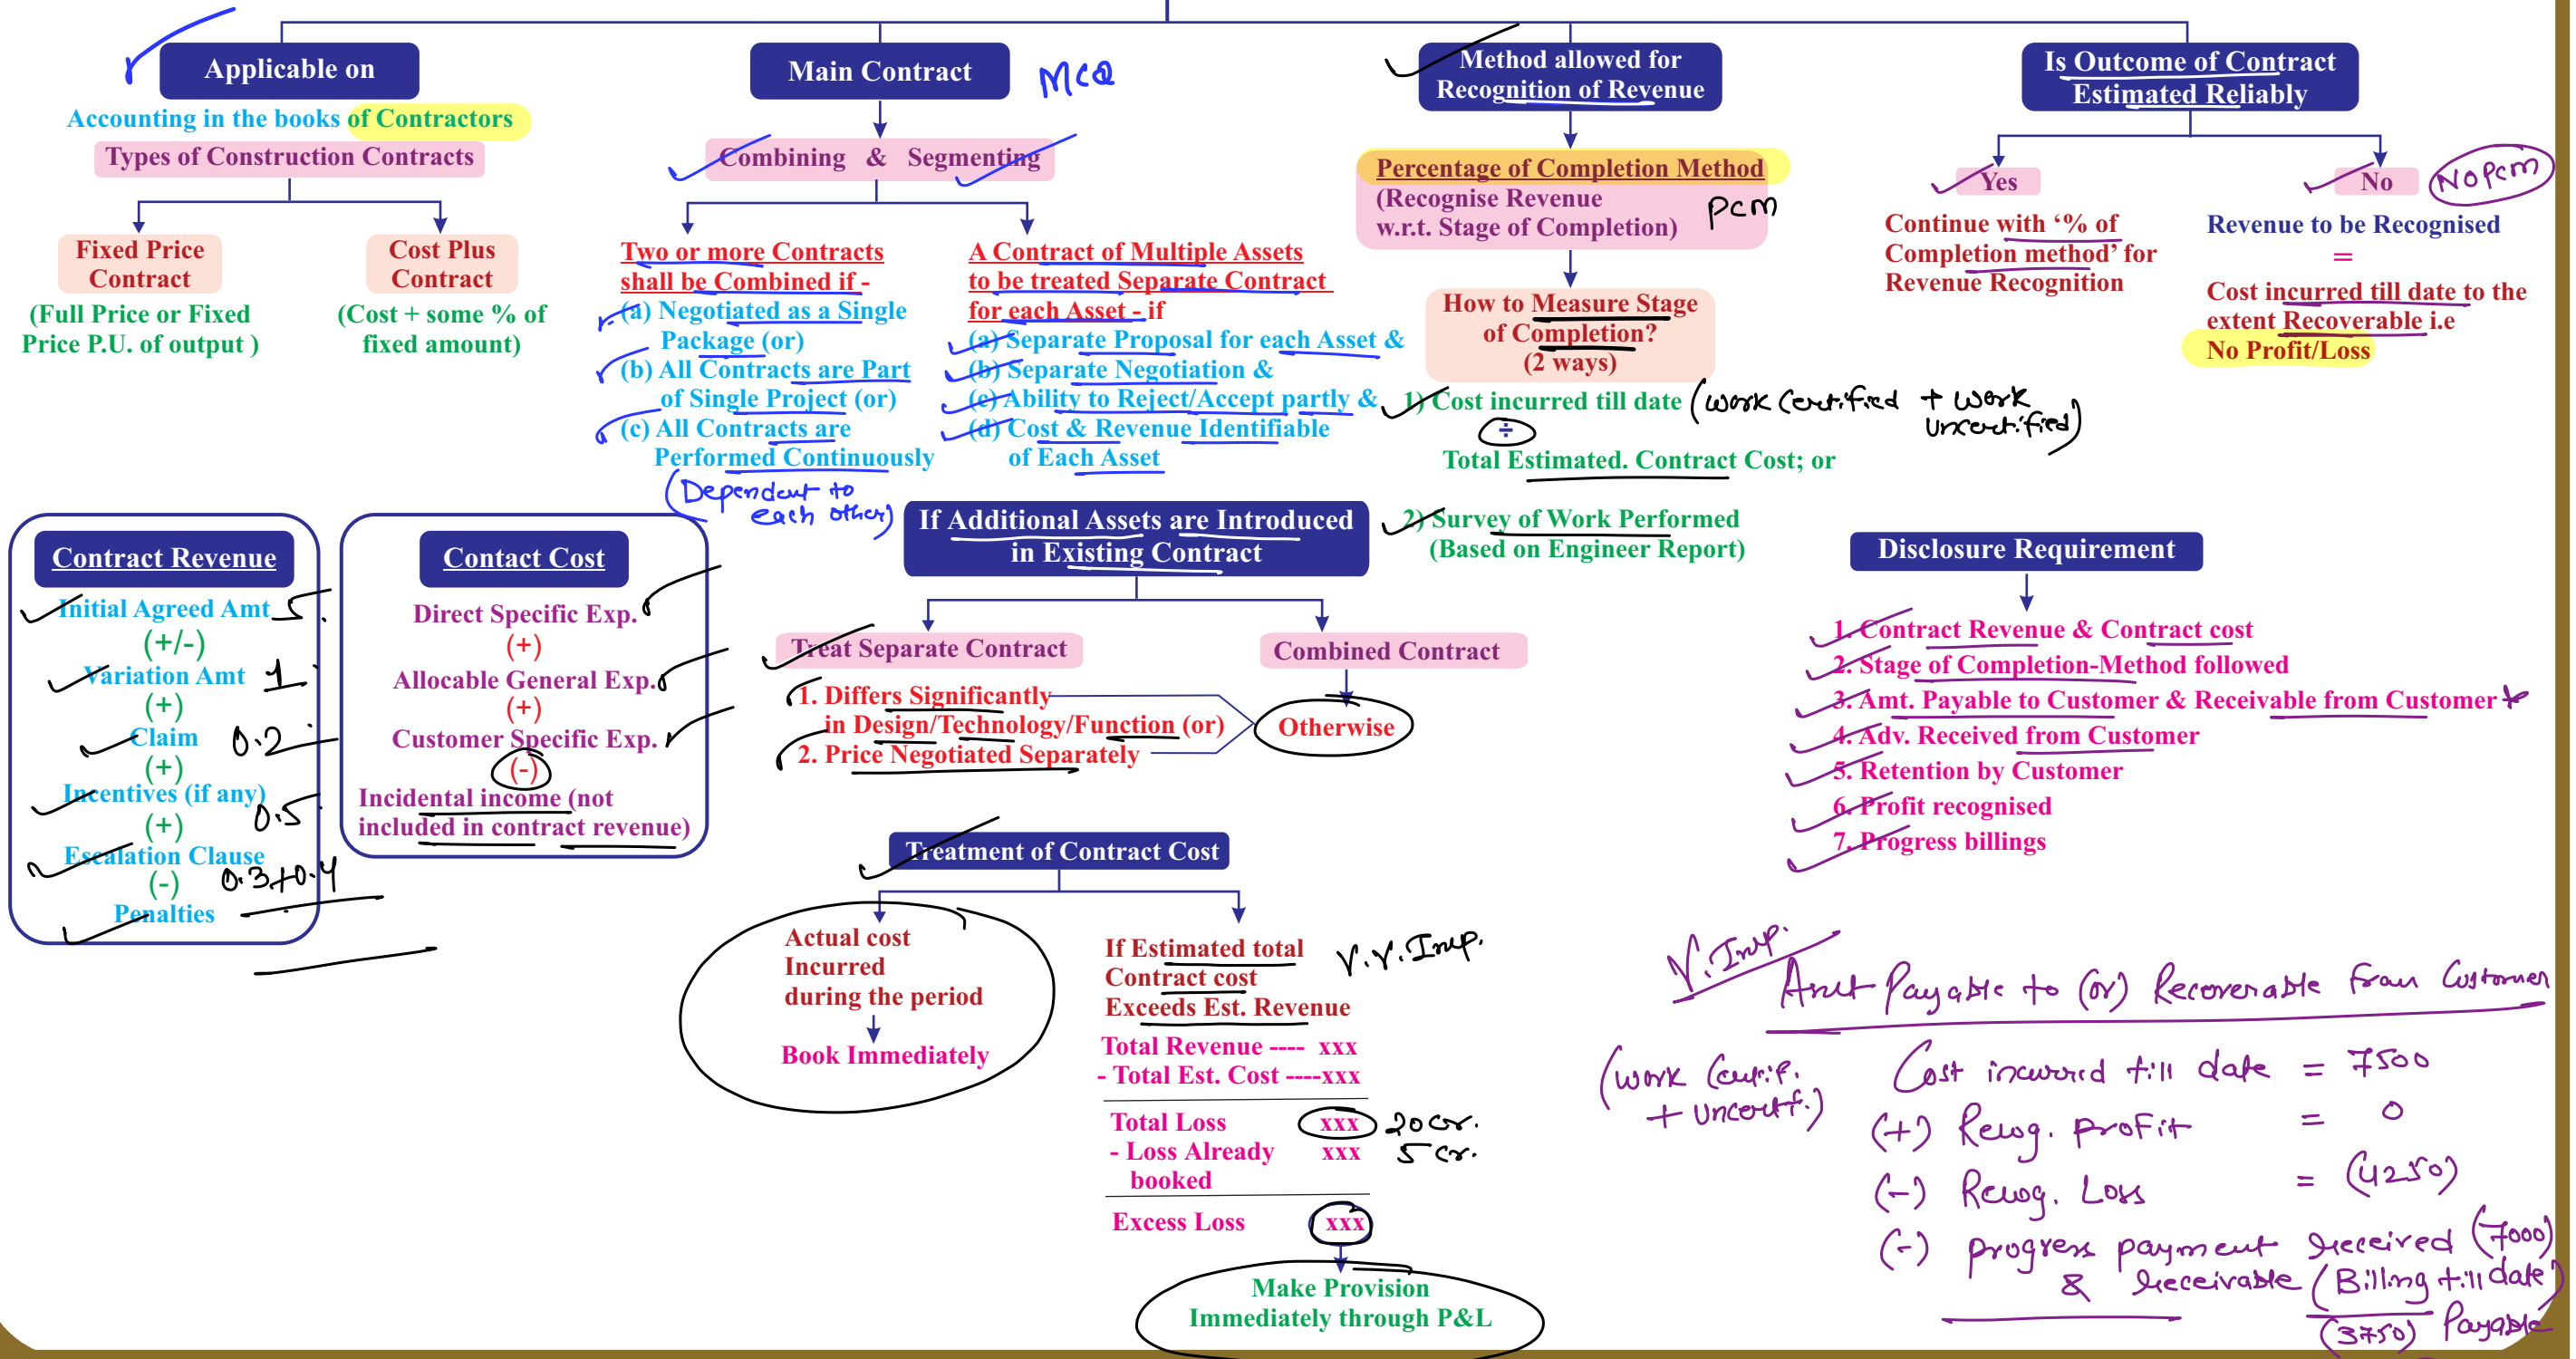 Applicable on
Accounting in the books of Contractors
Types of Construction Contracts
Fixed Price
Contract
(Full Price or Fixed
Price P.U. of output )
Cost Plus
Contract
(Cost + some % of
fixed amount)
Main Contract
MCQ
Combining & Segmenting
Two or more Contracts
shall be Combined if -
(a) Negotiated as a Single
Package (or)
(b) All Contracts are Part
of Single Project (or)
(c) All Contracts are
Performed Continuously
(Dependent to
each other)
A Contract of Multiple Assets
to be treated Separate Contract
for each Asset - if
(a) Separate Proposal for each Asset &
(b) Separate Negotiation &
(c) Ability to Reject/Accept partly &
(d) Cost & Revenue Identifiable
of Each Asset
Method allowed for
Recognition of Revenue
Percentage of Completion Method
(Recognise Revenue
w.r.t. Stage of Completion)
PCM
How to Measure Stage
of Completion?
(2 ways)
1) Cost incurred till date (work certified + work
uncertified)
÷
Total Estimated. Contract Cost; or
2) Survey of Work Performed
(Based on Engineer Report)
Is Outcome of Contract
Estimated Reliably
Yes
Continue with ‘% of
Completion method’ for
Revenue Recognition
No
NO PCM
Revenue to be Recognised
=
Cost incurred till date to the
extent Recoverable i.e
No Profit/Loss
Contract Revenue
Initial Agreed Amt 5
(+/-)
Variation Amt 1
(+)
Claim 0.2
(+)
Incentives (if any)
0.5
(+)
Escalation Clause
(-) 0.3+0.4
Penalties
Contact Cost
Direct Specific Exp.
(+)
Allocable General Exp.
(+)
Customer Specific Exp.
(-)
Incidental income (not
included in contract revenue)
If Additional Assets are Introduced
in Existing Contract
Treat Separate Contract
1. Differs Significantly
in Design/Technology/Function (or)
2. Price Negotiated Separately
Combined Contract
Otherwise
Treatment of Contract Cost
Actual cost
Incurred
during the period
Book Immediately
If Estimated total
Contract cost
Exceeds Est. Revenue
V.V.Imp.
Total Revenue ---- xxx
- Total Est. Cost ----xxx
Total Loss xxx 20 cr.
- Loss Already xxx 5 cr.
booked
Excess Loss xxx
Make Provision
Immediately through P&L
Disclosure Requirement
1. Contract Revenue & Contract cost
2. Stage of Completion-Method followed
3. Amt. Payable to Customer & Receivable from Customer *
4. Adv. Received from Customer
5. Retention by Customer
6. Profit recognised
7. Progress billings
V.Imp.
Amt Payable to (or) Recoverable from Customer
(work Certif.
+ uncertif.)
Cost incurred till date = 7500
(+) Recog. Profit = 0
(-) Recog. Loss = (4250)
(-) progress payment received (7000)
& receivable (Billing till date)
(3750) Payable